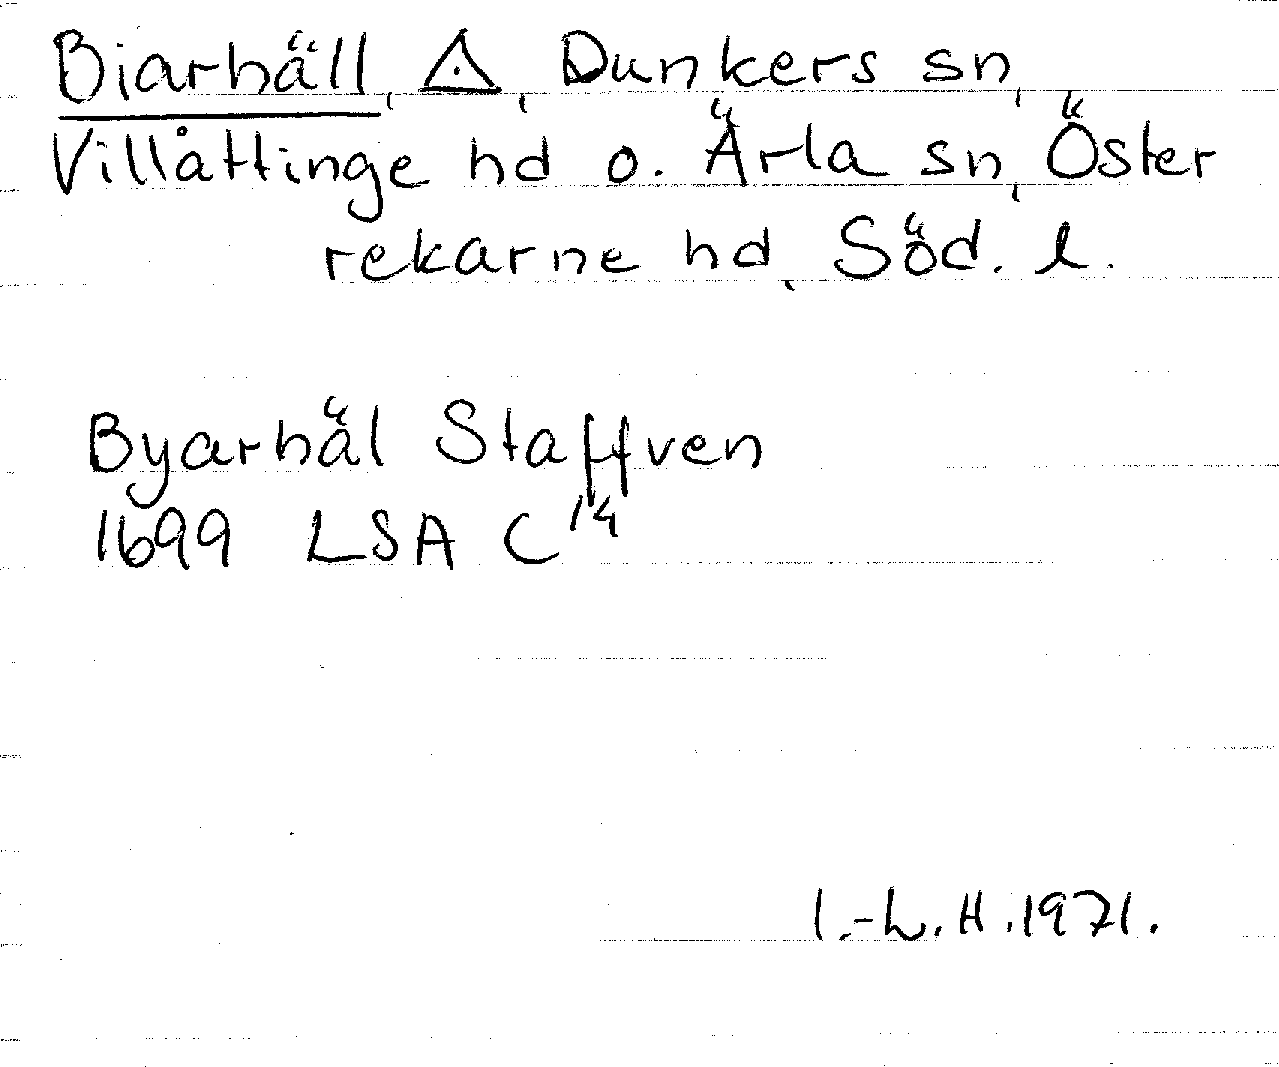 Biarhäll, ⚠, Dunkers sn,
Villåttinge hd o. Ärla sn, Öster
rekarne hd, Söd. l.
Byarhäl Staffven
1699 LSA C 14
I.-L. H. 1971.